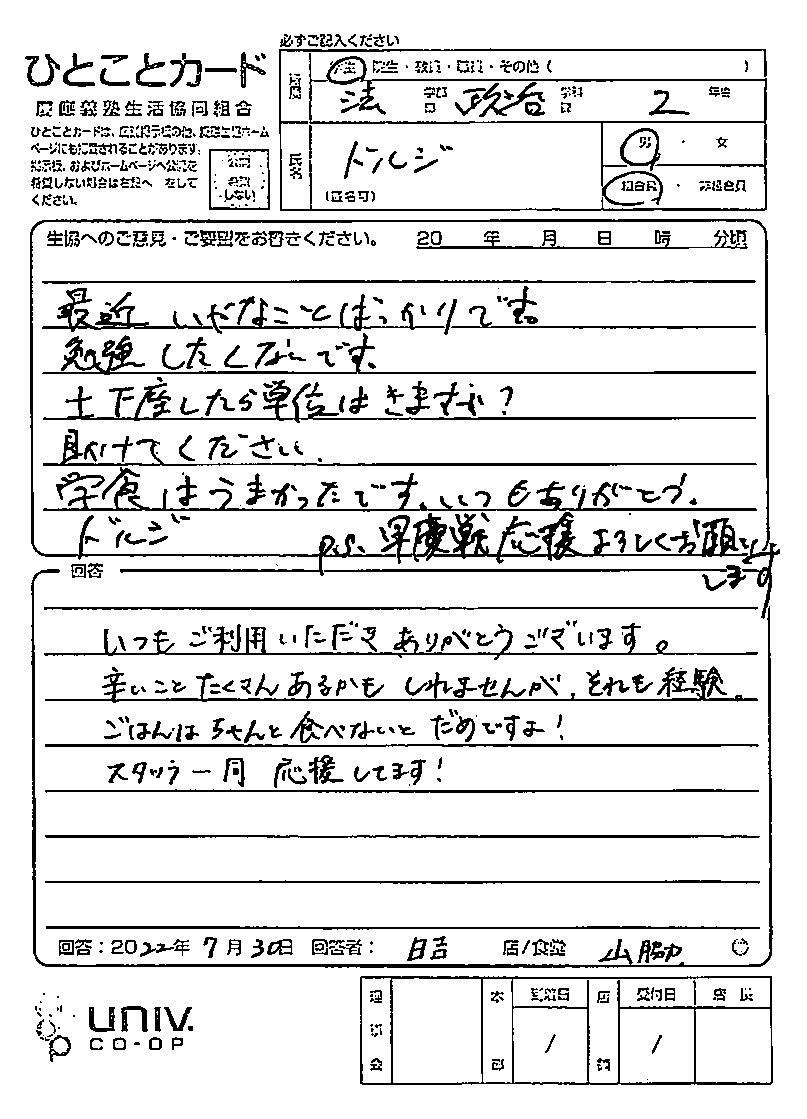 必ずご記入ください
ひとことカード
慶應義塾生活協同組合
ひとことカードは、店に掲示板の他、慶應生協ホーム
ページにも記載されることがあります。
掲示板、およびホームページへ公開を
希望しない場合は右記へ をして
ください。
公開
希望
しない
所属
学生 院生・教員・職員・その他( )
法 学部 政治 学科 2 年生
氏名
ドルジ
(匿名可)
男 ・ 女
組合員 ・ 非組合員
生協へのご意見・ご要望をお書きください。 20 年 月 日 時 分頃
最近 いやなことばっかりです。
勉強したくないです。
土下座したら単位はきますか?
助けてください。
学食はうまかったです。いつもありがとう。
ドルジ
p.s. 早慶戦応援よろしくお願い
します
回答
いつもご利用いただきありがとうございます。
辛いことたくさんあるかもしれませんが、それも経験。
ごはんはちゃんと食べないとだめですよ!
スタッフ一同 応援してます!
回答:2022年 7月 30日 回答者: 日吉 店/食堂 山脇
理事会
本部
受付日
店長
/ /
UNIV.
CO-OP